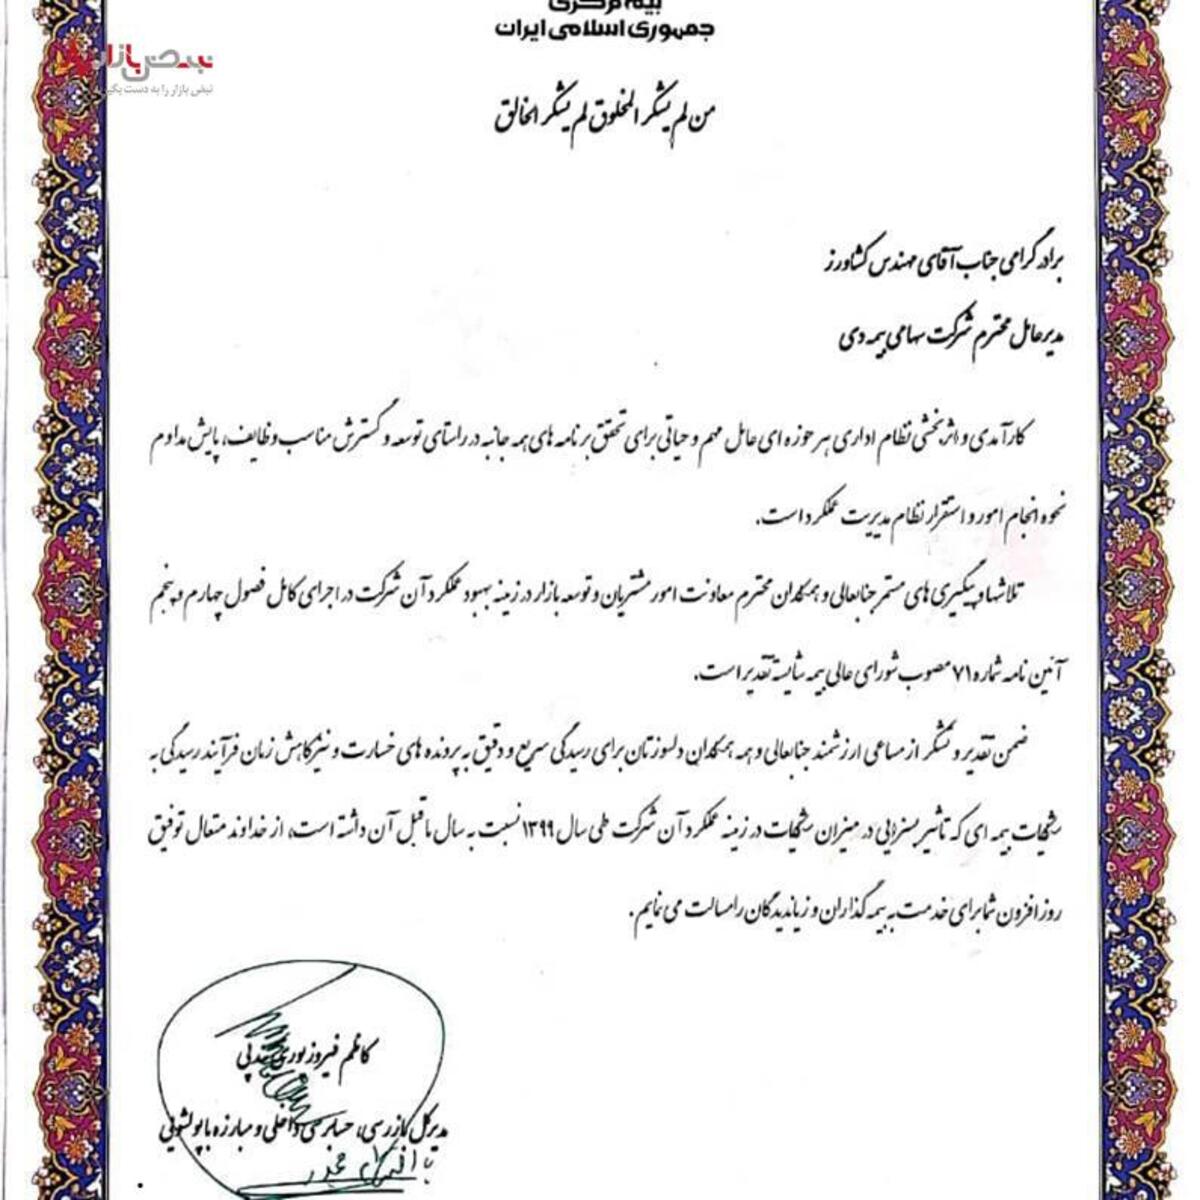 بیمه مرکزی
جمهوری اسلامی ایران
نبض بازار
نبض بازار را به دست بگیر
من لم یشکر المخلوق لم یشکر الخالق
برادر گرامی جناب آقای مهندس کشاورز
مدیرعامل محترم شرکت سهامی بیمه دی
کارآمدی و اثربخشی نظام اداری هر حوزه ای عامل مهم و حیاتی برای تحقق برنامه های همه جانبه در راستای توسعه و گسترش مناسب وظایف، پایش مداوم
نحوه انجام امور و استقرار نظام مدیریت عملکرد است.
تلاشها و پیگیری های مستمر جنابعالی و همکاران محترم معاونت امور مشتریان و توسعه بازار در زمینه بهبود عملکرد آن شرکت در اجرای کامل فصول چهارم و پنجم
آئین نامه شماره ۷۱ مصوب شورای عالی بیمه شایسته تقدیر است.
ضمن تقدیر و تشکر از مساعی ارزشمند جنابعالی و همه همکاران دلسوزتان برای رسیدگی سریع و دقیق به پرونده های خسارت و نیز کاهش زمان فرآیند رسیدگی به
شکایات بیمه ای که تاثیر بسزایی در میزان شکایات در زمینه عملکرد آن شرکت طی سال ۱۳۹۹ نسبت به سال ماقبل آن داشته است، از خداوند متعال توفیق
روزافزون شما برای خدمت به بیمه گذاران و زیاندیدگان را مسالت می نمایم.
کاظم فیروزبوری
مدیرکل بازرسی، حسابرسی داخلی و مبارزه با پولشویی
با احترام